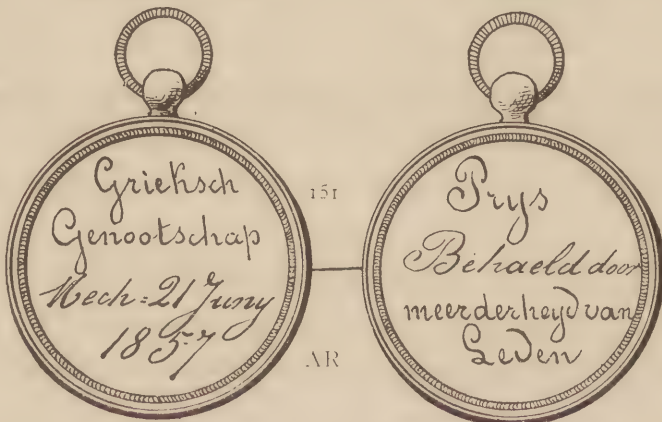 Grieksch
Genootschap
Mech: 21 Juny
1857
151
AR
Prys
Behaeld door
meerderheyd van
Leden